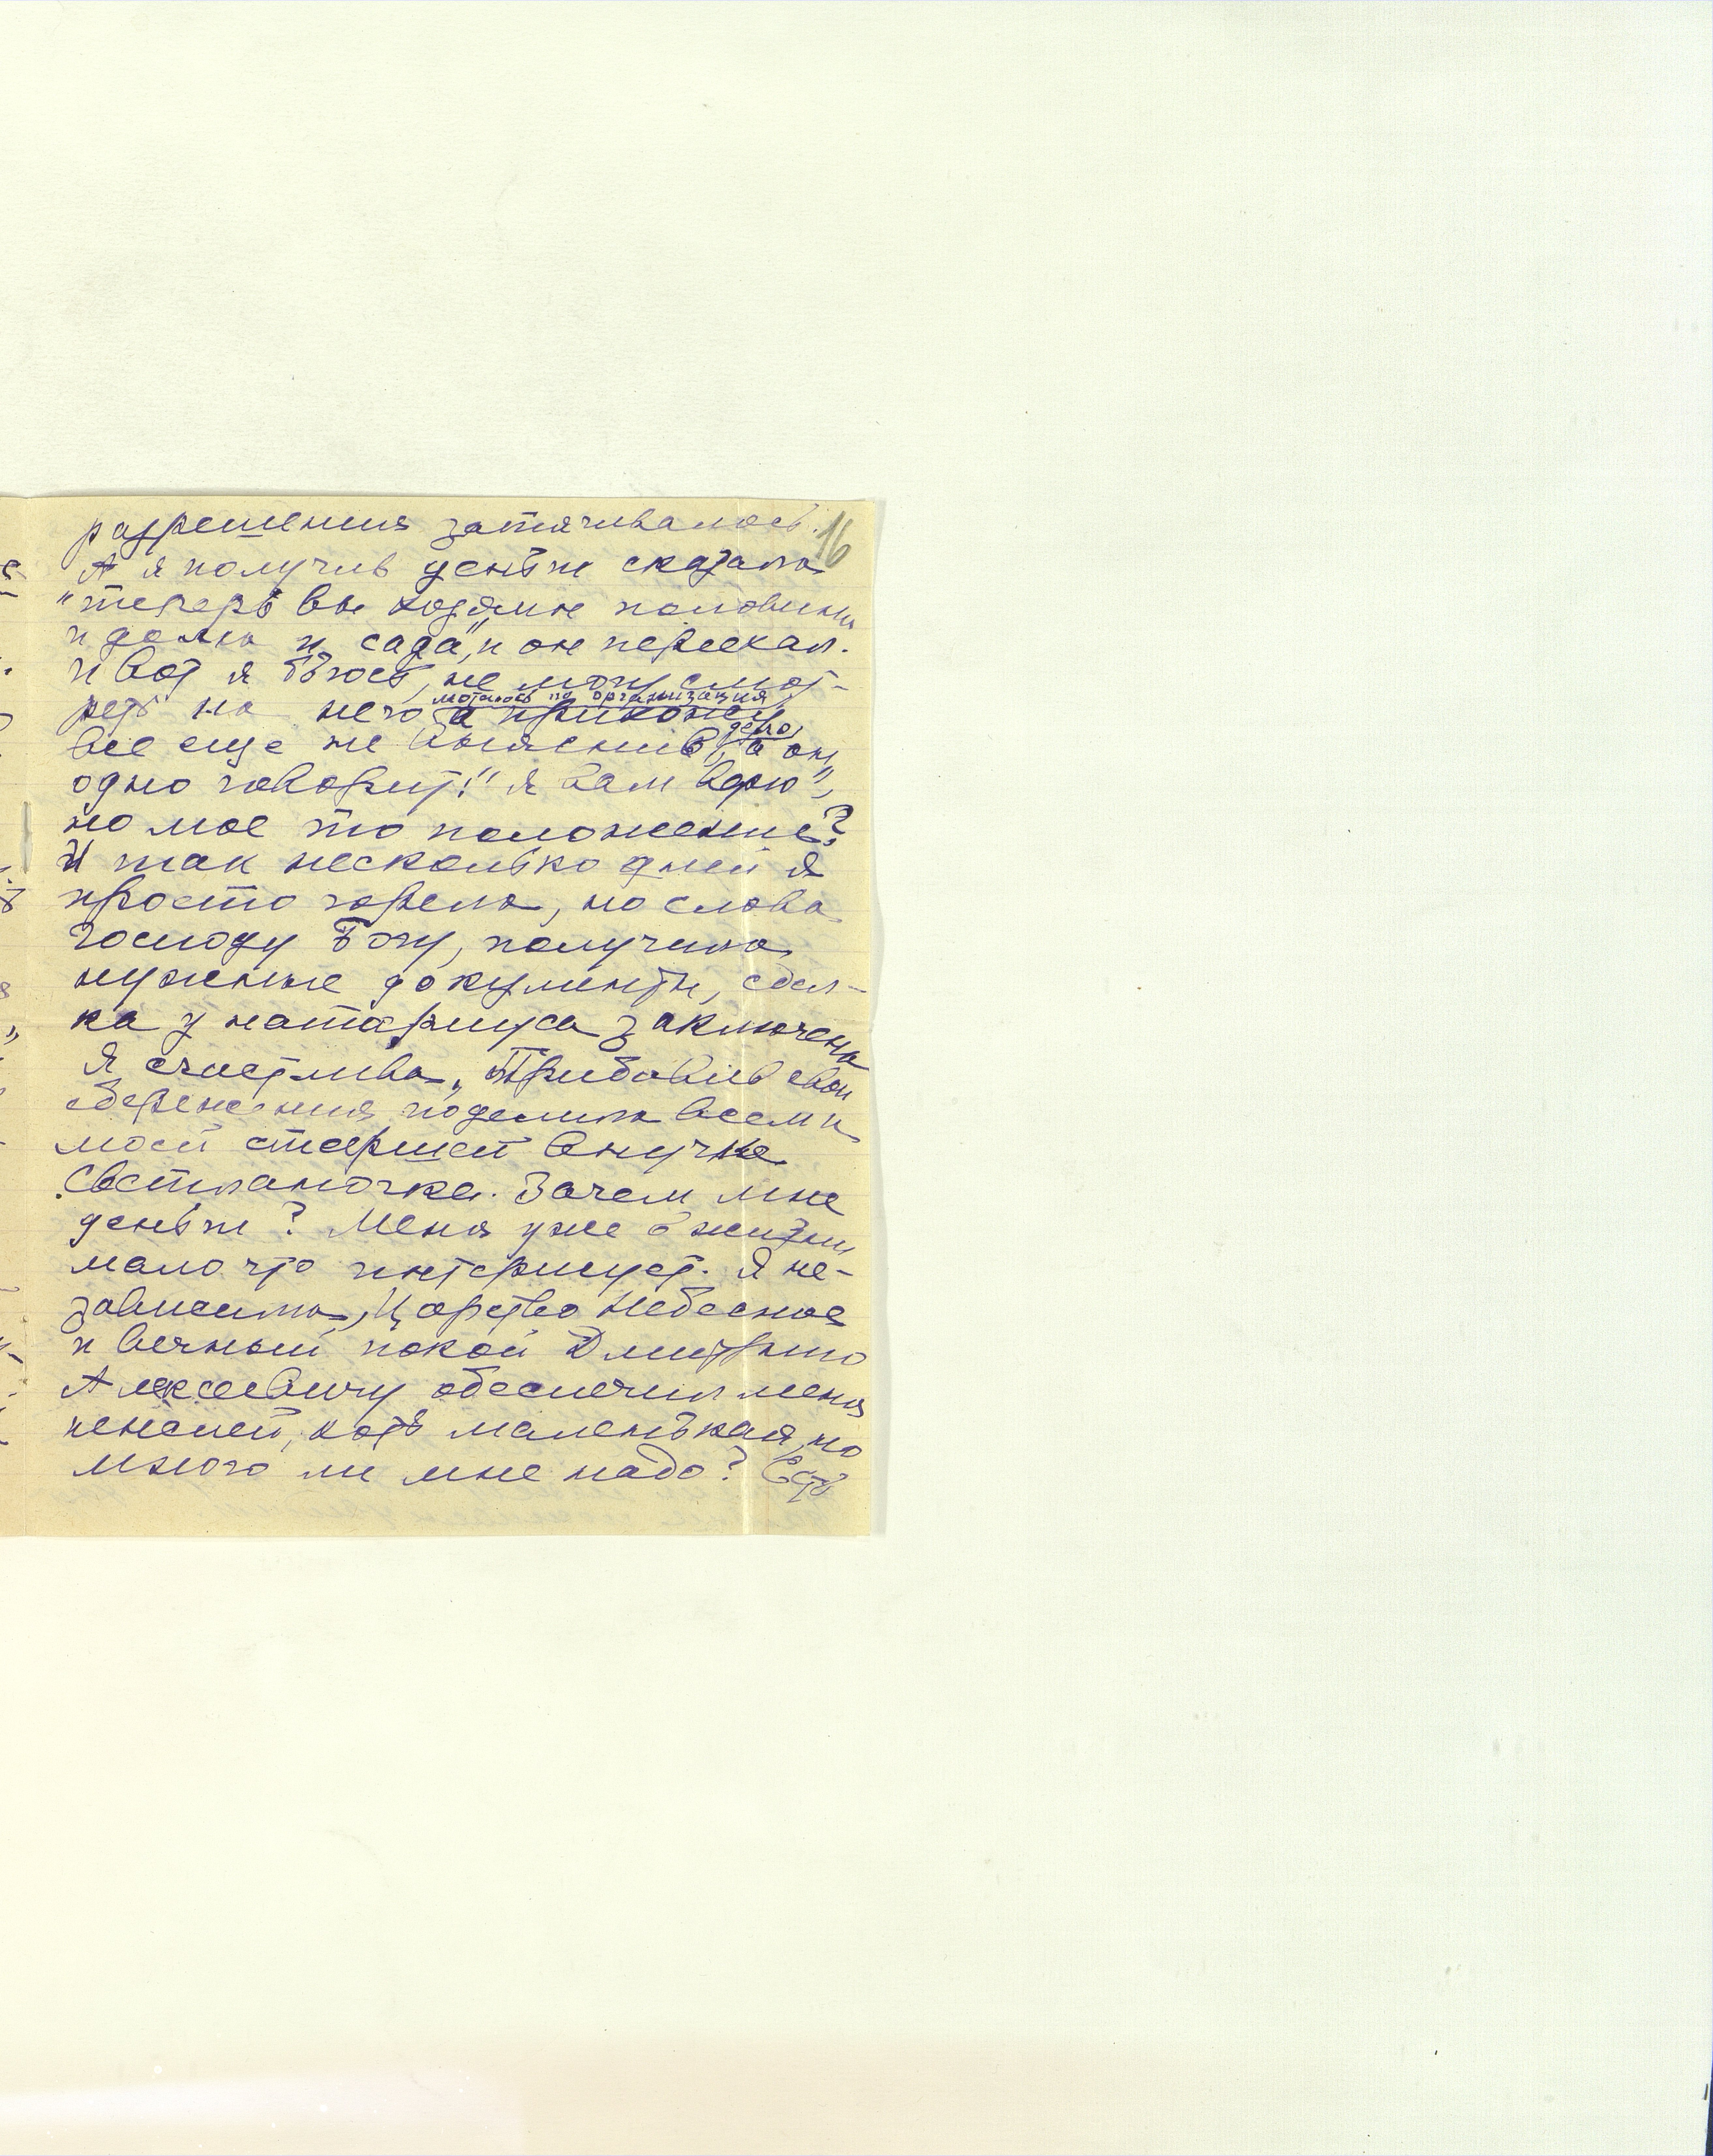 16
разрешения затягивалось.
А я получив деньги сказала
"теперь вы хозяин половины
и дома и сада", и он переехал.
И вот я бьюсь, не могу смот-
реть на него моталась по организация
а прихожу
все еще не выяснив дело, а он
одно говорит: "я вам верю",
но мое то положение?
И так несколько дней я
просто горела, но слава
Господу Богу, получила
нужные документы, сдел-
ка у натариуса заключена
Я счастлива, Прибавив свои
сбережения поделила всем и
моей старшей внучке
Светланочке. Зачем мне
деньги? Меня уже в жизни
мало что интерисует. Я не-
зависима, Царство Небесное
и вечный покой Дмитрию
Алексеевичу обеспечил меня
пенсией, хоть маленькая, но
много ли мне надо? Есть